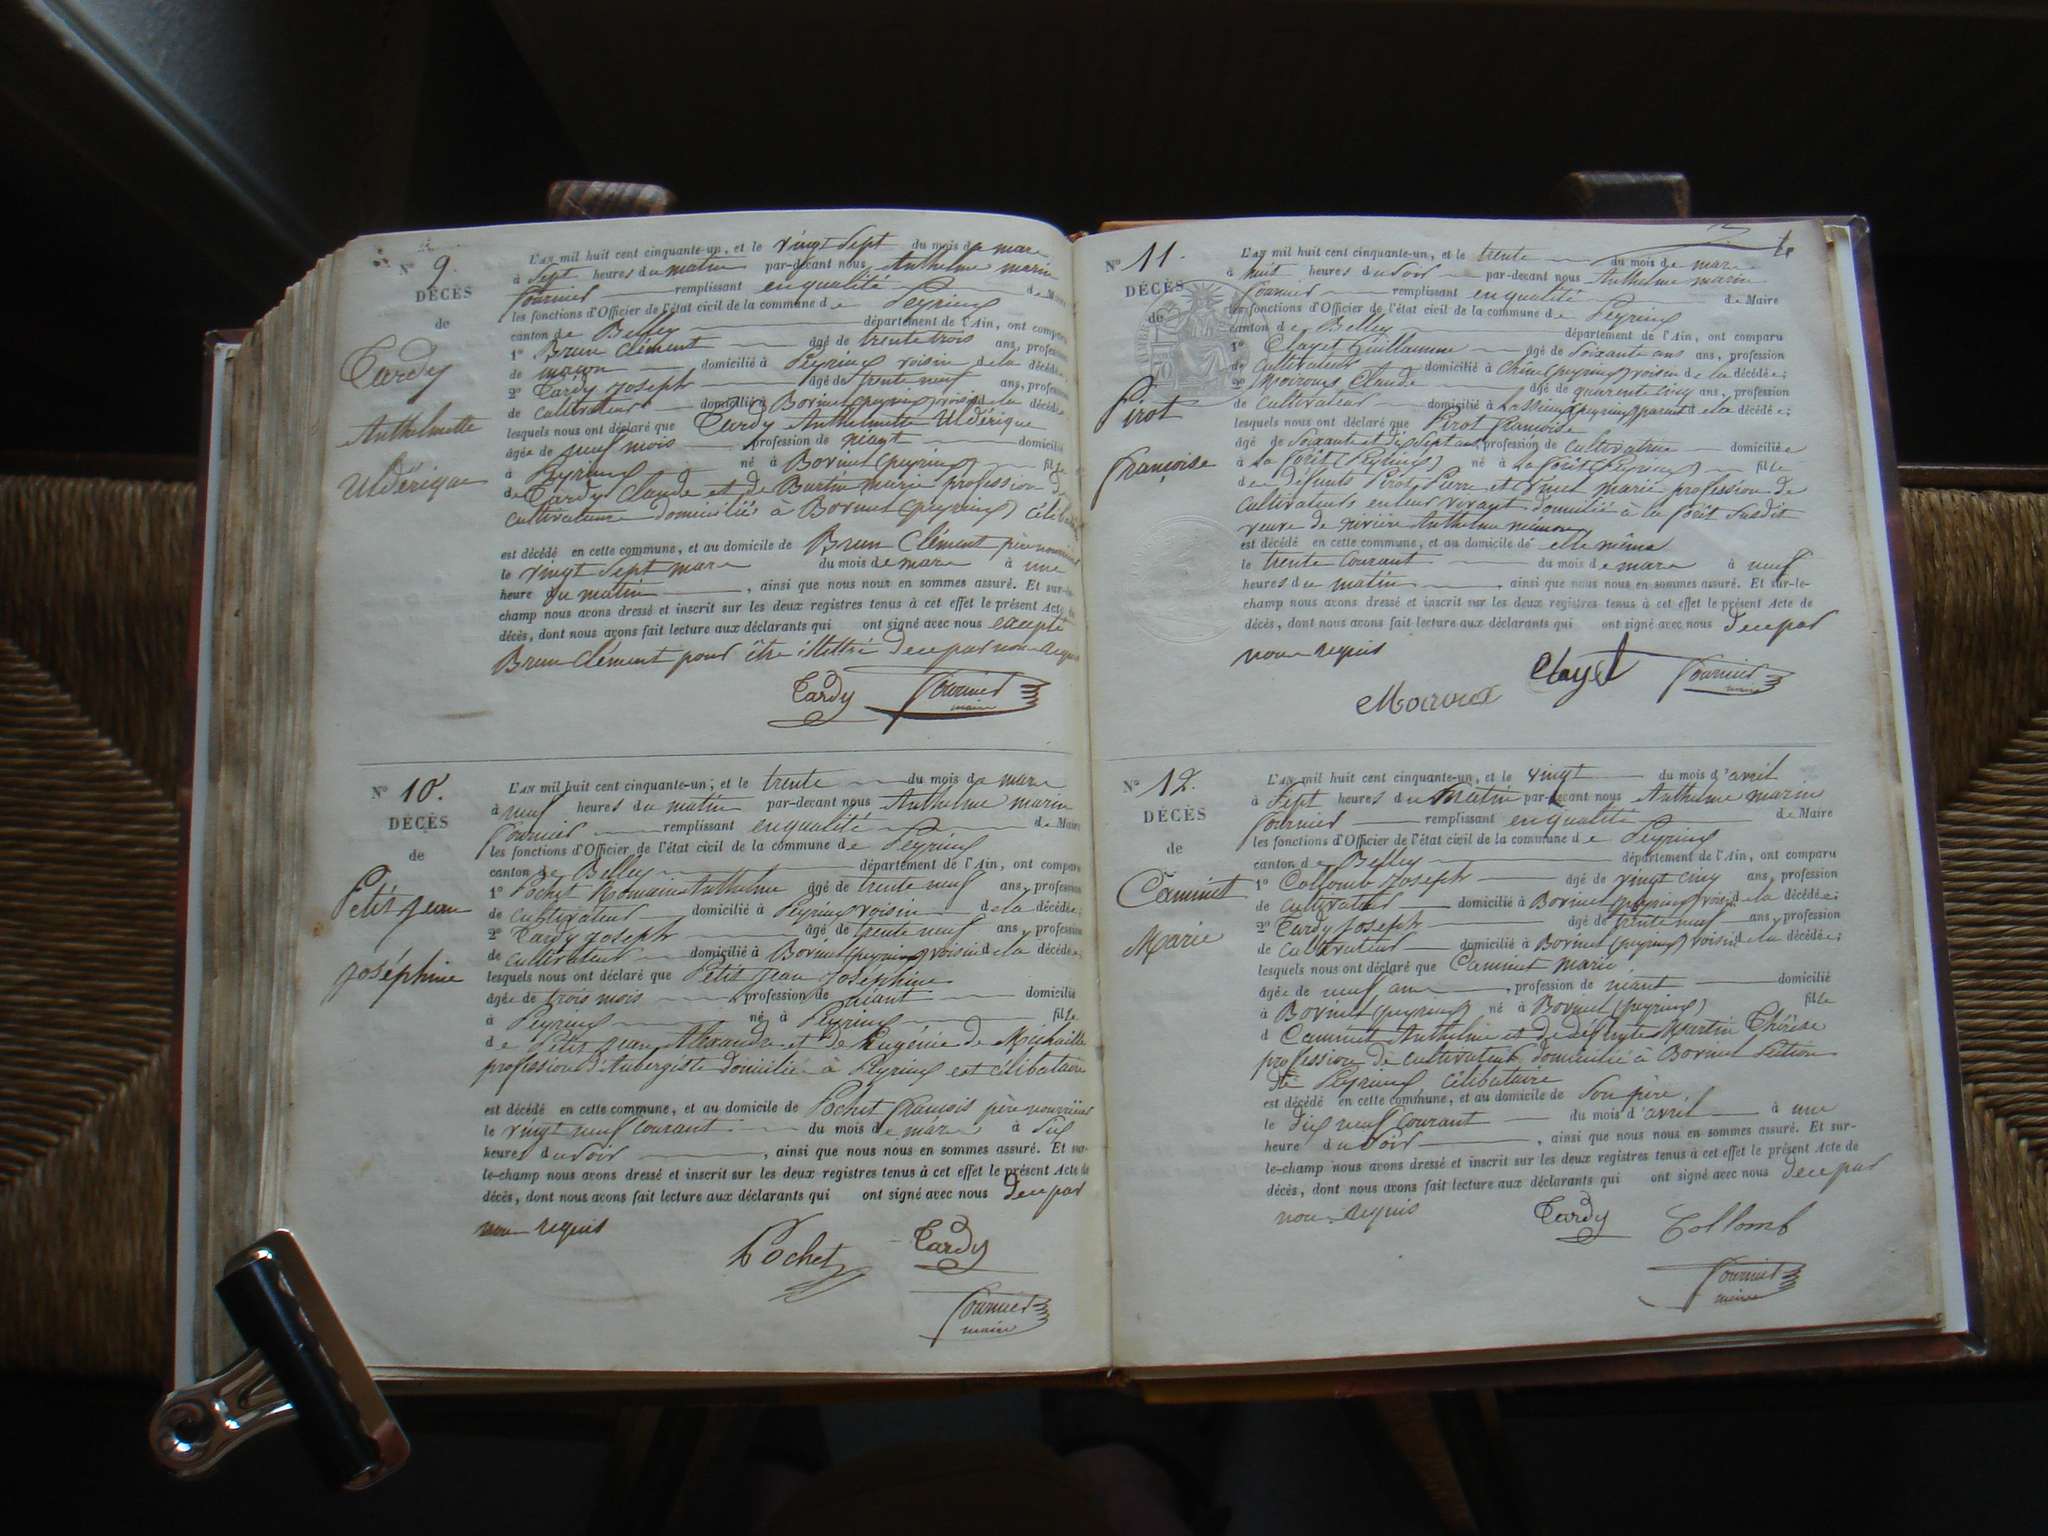 N° 9.
DÉCÈS
de
Tardy
Anthelmette
Uldérique
L'AN mil huit cent cinquante-un, et le vingt sept du mois de mars
à sept heures du matin par-devant nous Anthelme marin
Fournier remplissant en qualité de Maire
les fonctions d'Officier de l'état civil de la commune de Peyrieu
canton de Belley département de l'Ain, ont comparu
1° Brun Clément âgé de trente trois ans, profession
de maçon domicilié à Peyrieu voisin de la décédée;
2° Tardy Joseph âgé de trente neuf ans, profession
de cultivateur domicilié à Borinet (peyrieu) voisin de la décédée
lesquels nous ont déclaré que Tardy Anthelmette Uldérique
âgée de neuf mois profession de néant domicilié
à Peyrieu né à Borinet (peyrieu) fille
de Tardy Claude et de Burtin marie profession de
cultivateurs domiciliés à Borinet (peyrieu) céliba
est décédé en cette commune, et au domicile de Brun Clément père nourricier
le vingt sept mars du mois de mars à une
heure du matin , ainsi que nous nous en sommes assuré. Et sur-le-
champ nous avons dressé et inscrit sur les deux registres tenus à cet effet le présent Acte de
décès, dont nous avons fait lecture aux déclarants qui ont signé avec nous excepté
Brun Clément pour être illettré de ce par nous requis
Tardy Fournier
maire
N° 10.
DÉCÈS
de
Petit Jean
Joséphine
L'AN mil huit cent cinquante-un, et le trente du mois de mars
à neuf heures du matin par-devant nous Anthelme marin
Fournier remplissant en qualité de Maire
les fonctions d'Officier de l'état civil de la commune de Peyrieu
canton de Belley département de l'Ain, ont comparu
1° Pochet Romain Anthelme âgé de trente neuf ans, profession
de cultivateur domicilié à Peyrieu voisin de la décédée;
2° Tardy Joseph âgé de trente neuf ans, profession
de cultivateur domicilié à Borinet (peyrieu) voisin de la décédée;
lesquels nous ont déclaré que Petit Jean Joséphine
âgée de trois mois profession de néant domicilié
à Peyrieu né à Peyrieu fille
de Petit Jean Alexandre et de Eugénie de Michaille
profession d'Aubergiste domicilié à Peyrieu est célibataire
est décédé en cette commune, et au domicile de Pochet François père nourricier
le vingt neuf courant du mois de mars à six
heures du soir , ainsi que nous nous en sommes assuré. Et sur-
le-champ nous avons dressé et inscrit sur les deux registres tenus à cet effet le présent Acte de
décès, dont nous avons fait lecture aux déclarants qui ont signé avec nous de ce par
nous requis
Pochet Tardy
Fournier
maire
N° 11.
DÉCÈS
de
Pirot
Françoise
L'AN mil huit cent cinquante-un, et le trente du mois de mars
à huit heures du soir par-devant nous Anthelme marin
Fournier remplissant en qualité de Maire
les fonctions d'Officier de l'état civil de la commune de Peyrieu
canton de Belley département de l'Ain, ont comparu
1° Clayet Guillaume âgé de soixante ans ans, profession
de cultivateur domicilié à (peyrieu) voisin de la décédée;
2° Moiroux Claude âgé de quarente cinq ans, profession
de cultivateur domicilié à (peyrieu) parent de la décédée;
lesquels nous ont déclaré que Pirot françoise
âgé de soixante et dix sept ans, profession de cultivatrice domiciliée
à La forêt (Peyrieu) né à La forêt (Peyrieu) fille
de défunts Pirot Pierre et marie profession de
cultivateurs en leur vivant domicilié à la forêt susdit
veuve de rivière Anthelme
est décédé en cette commune, et au domicile de elle même
le trente courant du mois de mars à neuf
heures du matin , ainsi que nous nous en sommes assuré. Et sur-le-
champ nous avons dressé et inscrit sur les deux registres tenus à cet effet le présent Acte de
décès, dont nous avons fait lecture aux déclarants qui ont signé avec nous de ce par
nous requis
Moiroux Clayet Fournier
maire
N° 12.
DÉCÈS
de
Caminet
Marie
L'AN mil huit cent cinquante-un, et le vingt du mois d'avril
à sept heures du matin par-devant nous Anthelme marin
Fournier remplissant en qualité de Maire
les fonctions d'Officier de l'état civil de la commune de Peyrieu
canton de Belley département de l'Ain, ont comparu
1° Collomb Joseph âgé de vingt cinq ans, profession
de cultivateur domicilié à Borinet (peyrieu) voisin de la décédée;
2° Tardy Joseph âgé de trente neuf ans, profession
de cultivateur domicilié à Borinet (peyrieu) voisin de la décédée;
lesquels nous ont déclaré que Caminet marie
âgée de neuf ans , profession de néant domicilié
à Borinet (peyrieu) né à Borinet (peyrieu) fille
d Caminet Anthelme et de défunte Martin Thérèse
profession de cultivateur domicilié à Borinet section
de Peyrieu célibataire
est décédé en cette commune, et au domicile de son père,
le dix neuf courant du mois d'avril à une
heure du soir , ainsi que nous nous en sommes assuré. Et sur-
le-champ nous avons dressé et inscrit sur les deux registres tenus à cet effet le présent Acte de
décès, dont nous avons fait lecture aux déclarants qui ont signé avec nous de ce par
nous requis
Tardy Collomb
Fournier
maire